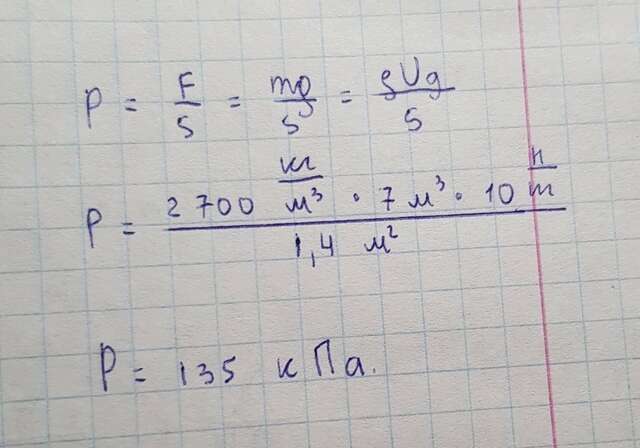 P = F/S = mg/S = ρVg/S
P = 2 700 кг/м³ · 7 м³ · 10 н/m / 1,4 м²
P = 135 кПа.